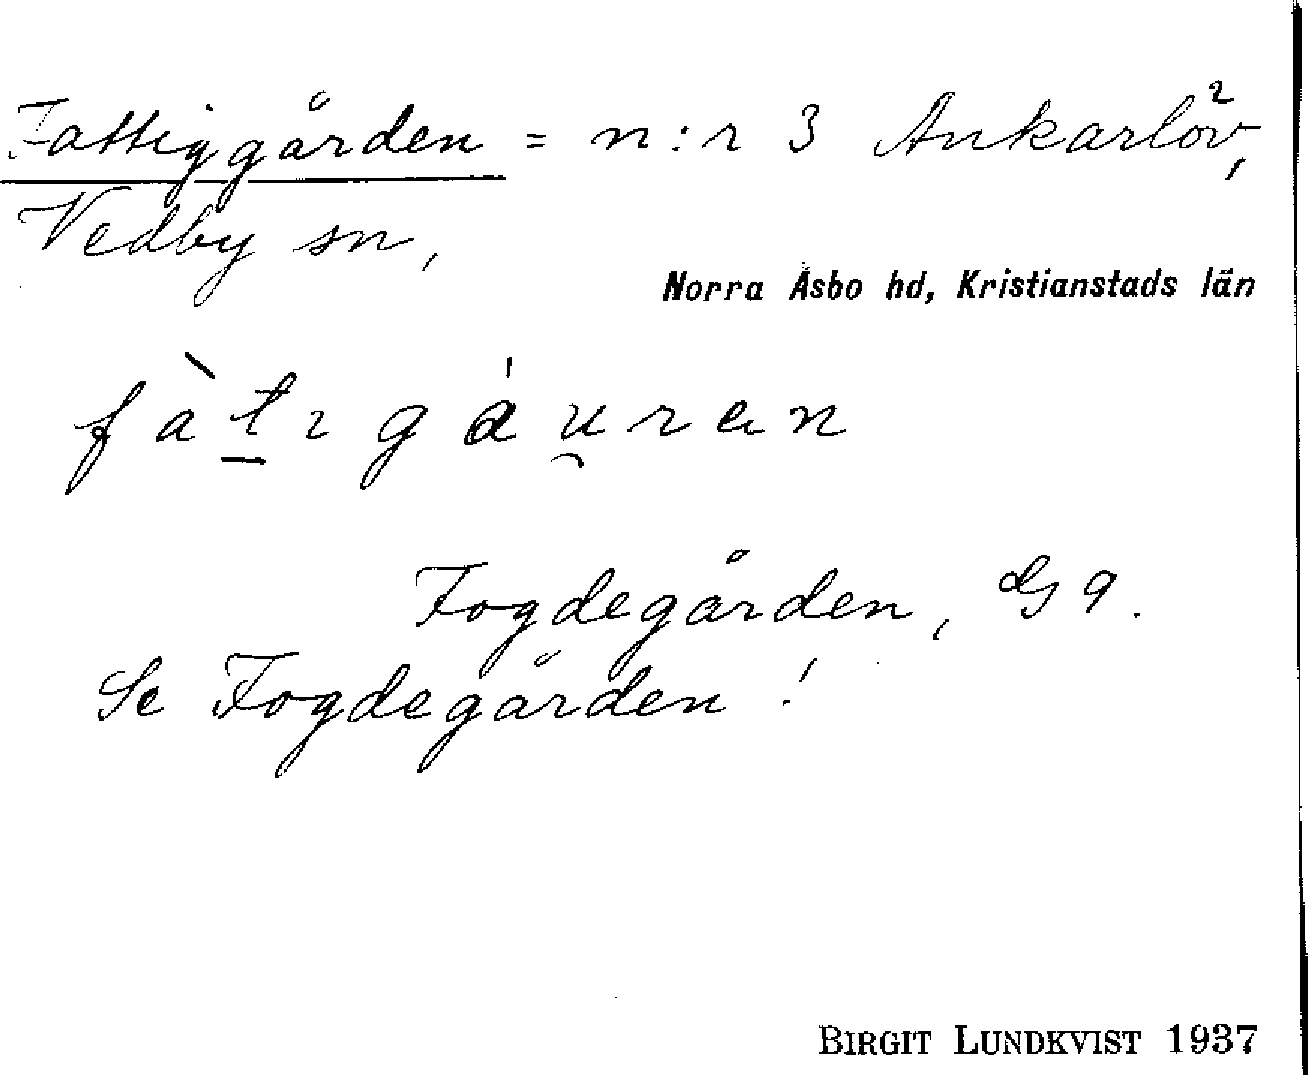 Fattiggården = n:r 3 Ankarlöv,
Vedby sn,
Norra Åsbo hd, Kristianstads län
fàt̠ıgáu̯ran
Fogdegården, G9.
Se Fogdegården!
BIRGIT LUNDKVIST 1937